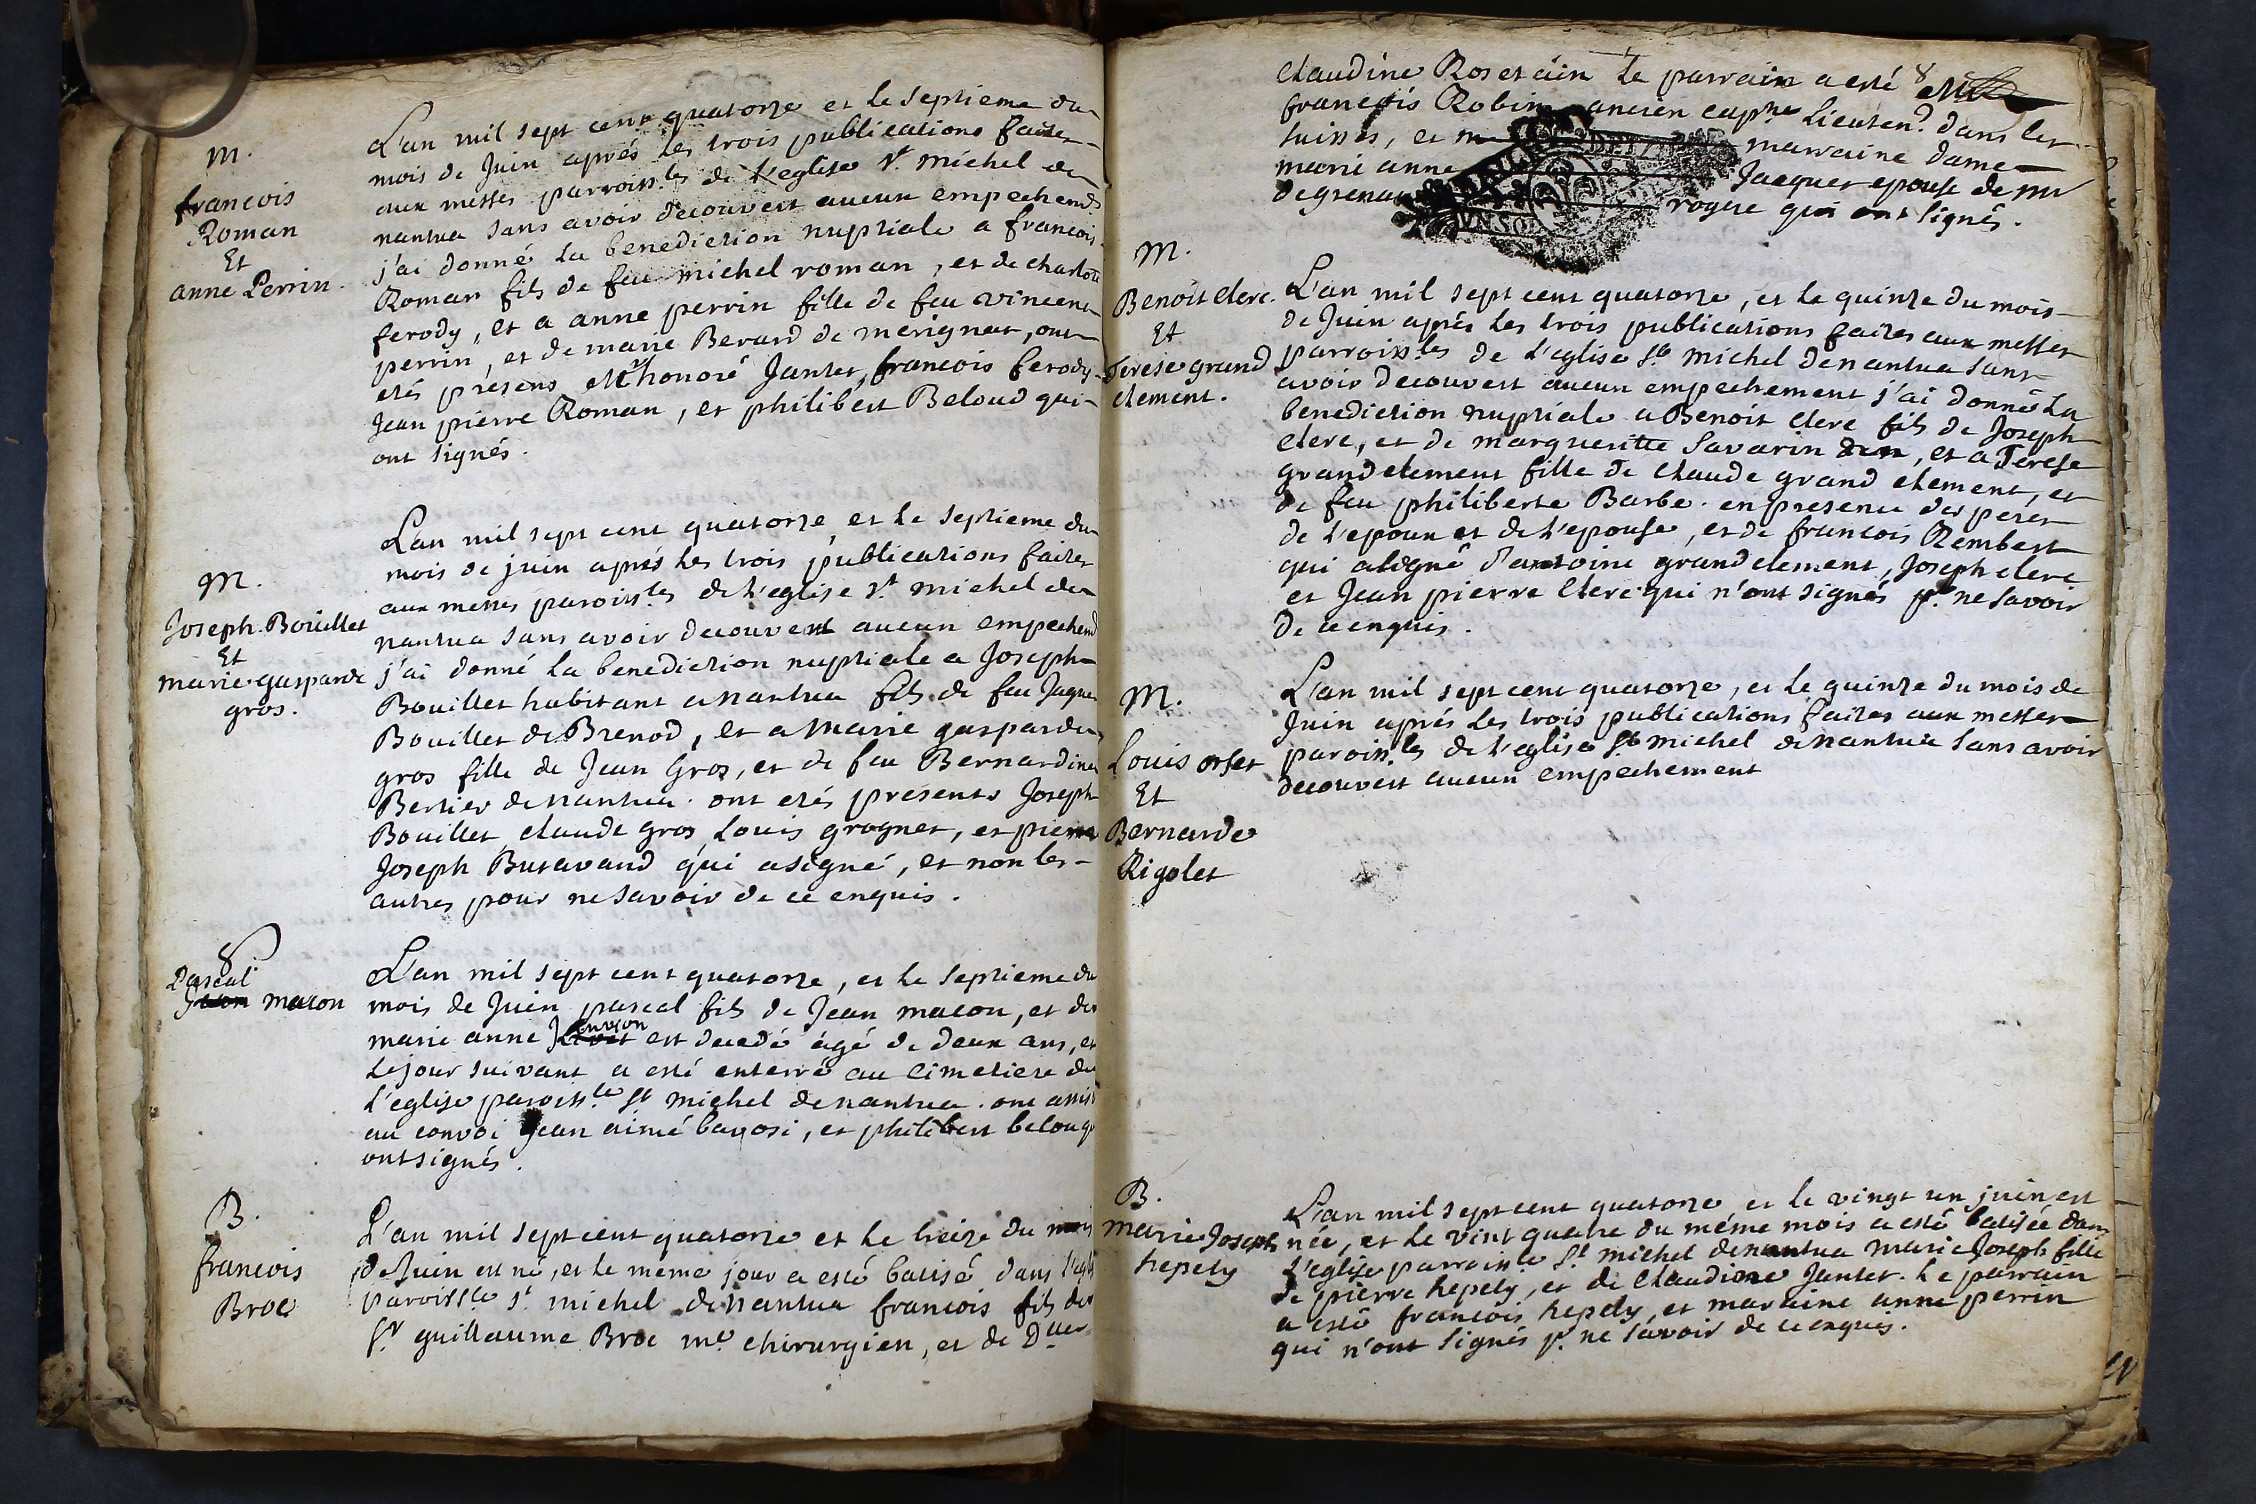 M.
francois
Roman
Et
anne Perrin.
L'an mil sept cent quatorze et le septieme du
mois de Juin aprés les trois publications faites
aux messes parroiss.les de l'eglise St. michel de
nantua sans avoir decouvert aucun empechend
j'ai donné la benediction nuptiale a francois
Roman fils de feu michel roman, et de charlote
ferody, et a anne perrin fille de feu vincent
perrin, et de marie Berard de merignat, ont
etés présens Mr honoré Jantet, francois ferody
Jean pierre Roman, et philibert Beloud qui
ont signés.
M.
Joseph Bouillet
Et
marie gasparde
gros.
L'an mil sept cent quatorze et le septieme du
mois de juin aprés les trois publications faites
aux messes paroiss.les de l'eglise St. michel de
nantua sans avoir decouvert aucun empechend
j'ai donné la benediction nuptiale a Joseph
Bouillet habitant a nantua fils de feu Jaque
Bouillet de Brenod, et a Marie gasparde
gros fille de Jean Gros, et de feu Bernardine
Bertier de nantua. ont etés présents Joseph
Bouillet, claude gros, Louis grognet, et pierre
Joseph Butavand qui a signé, et non les
autres pour ne savoir de ce enquis.
Pascal
macon
L'an mil sept cent quatorze, et le septieme du
mois de Juin pascal fils de Jean macon, et de
marie anne est decedé âgé de deux ans, et
le jour suivant a esté enterré au cimetiere de
l'eglise paroiss.le St michel de nantua. ont assis
au convoi Jean aimé bavosi, et philibert belou q
ont signés.
B.
francois
Broc
L'an mil sept cent quatorze et le treize du mois
de Juin est né, et le meme jour a esté batisé dans l'egli
paroiss.le St. michel de nantua francois fils de
Sr guillaume Broc me. chirurgien, et de D.lle
claudine Rosetain Le parrain a esté Mr
francois Robin ancien cap.ne Lieuten.d dans les
suisses, et marraine dame
marie anne Jacquet epouse de mr
de grena royere qui ont signés.
M.
Benoit Clerc.
Et
Terese grand
clement.
L'an mil sept cent quatorze, et le quinze du mois
de Juin aprés les trois publications faites aux messes
parroiss.les de l'eglise St. michel de nantua sans
avoir decouvert aucun empechement j'ai donné la
benediction nuptiale a Benoit Clerc fils de Joseph
clerc, et de marguerite Savarin, et a Terese
grandclement fille de Claude grand clement, et
de feu philiberte Barbe. en presence des péres
de l'epoux et de l'epouse, et de francois Rembert
qui a signé d'antoine grandclement, Joseph clerc
et Jean pierre Clerc qui n'ont signés p.r ne savoir
de ce enquis.
M.
Louis orset
Et
Bernarde
Rigolet
L'an mil sept cent quatorze, et le quinze du mois de
Juin aprés les trois publications faites aux messes
paroiss.les de l'eglise St michel de nantua sans avoir
decouvert aucun empechement
B.
Marie Joseph
hepely
L'an mil sept cent quatorze et le vingt un juin est
née, et le vint quatre du méme mois a esté batisée dans
l'eglise parroiss.le St. michel de nantua marie Joseph fille
de pierre hepely, et de Claudine Jantet. Le parrain
a esté francois hepely, et maraine anne perrin
qui n'ont signés p.r ne savoir de ce enquis.